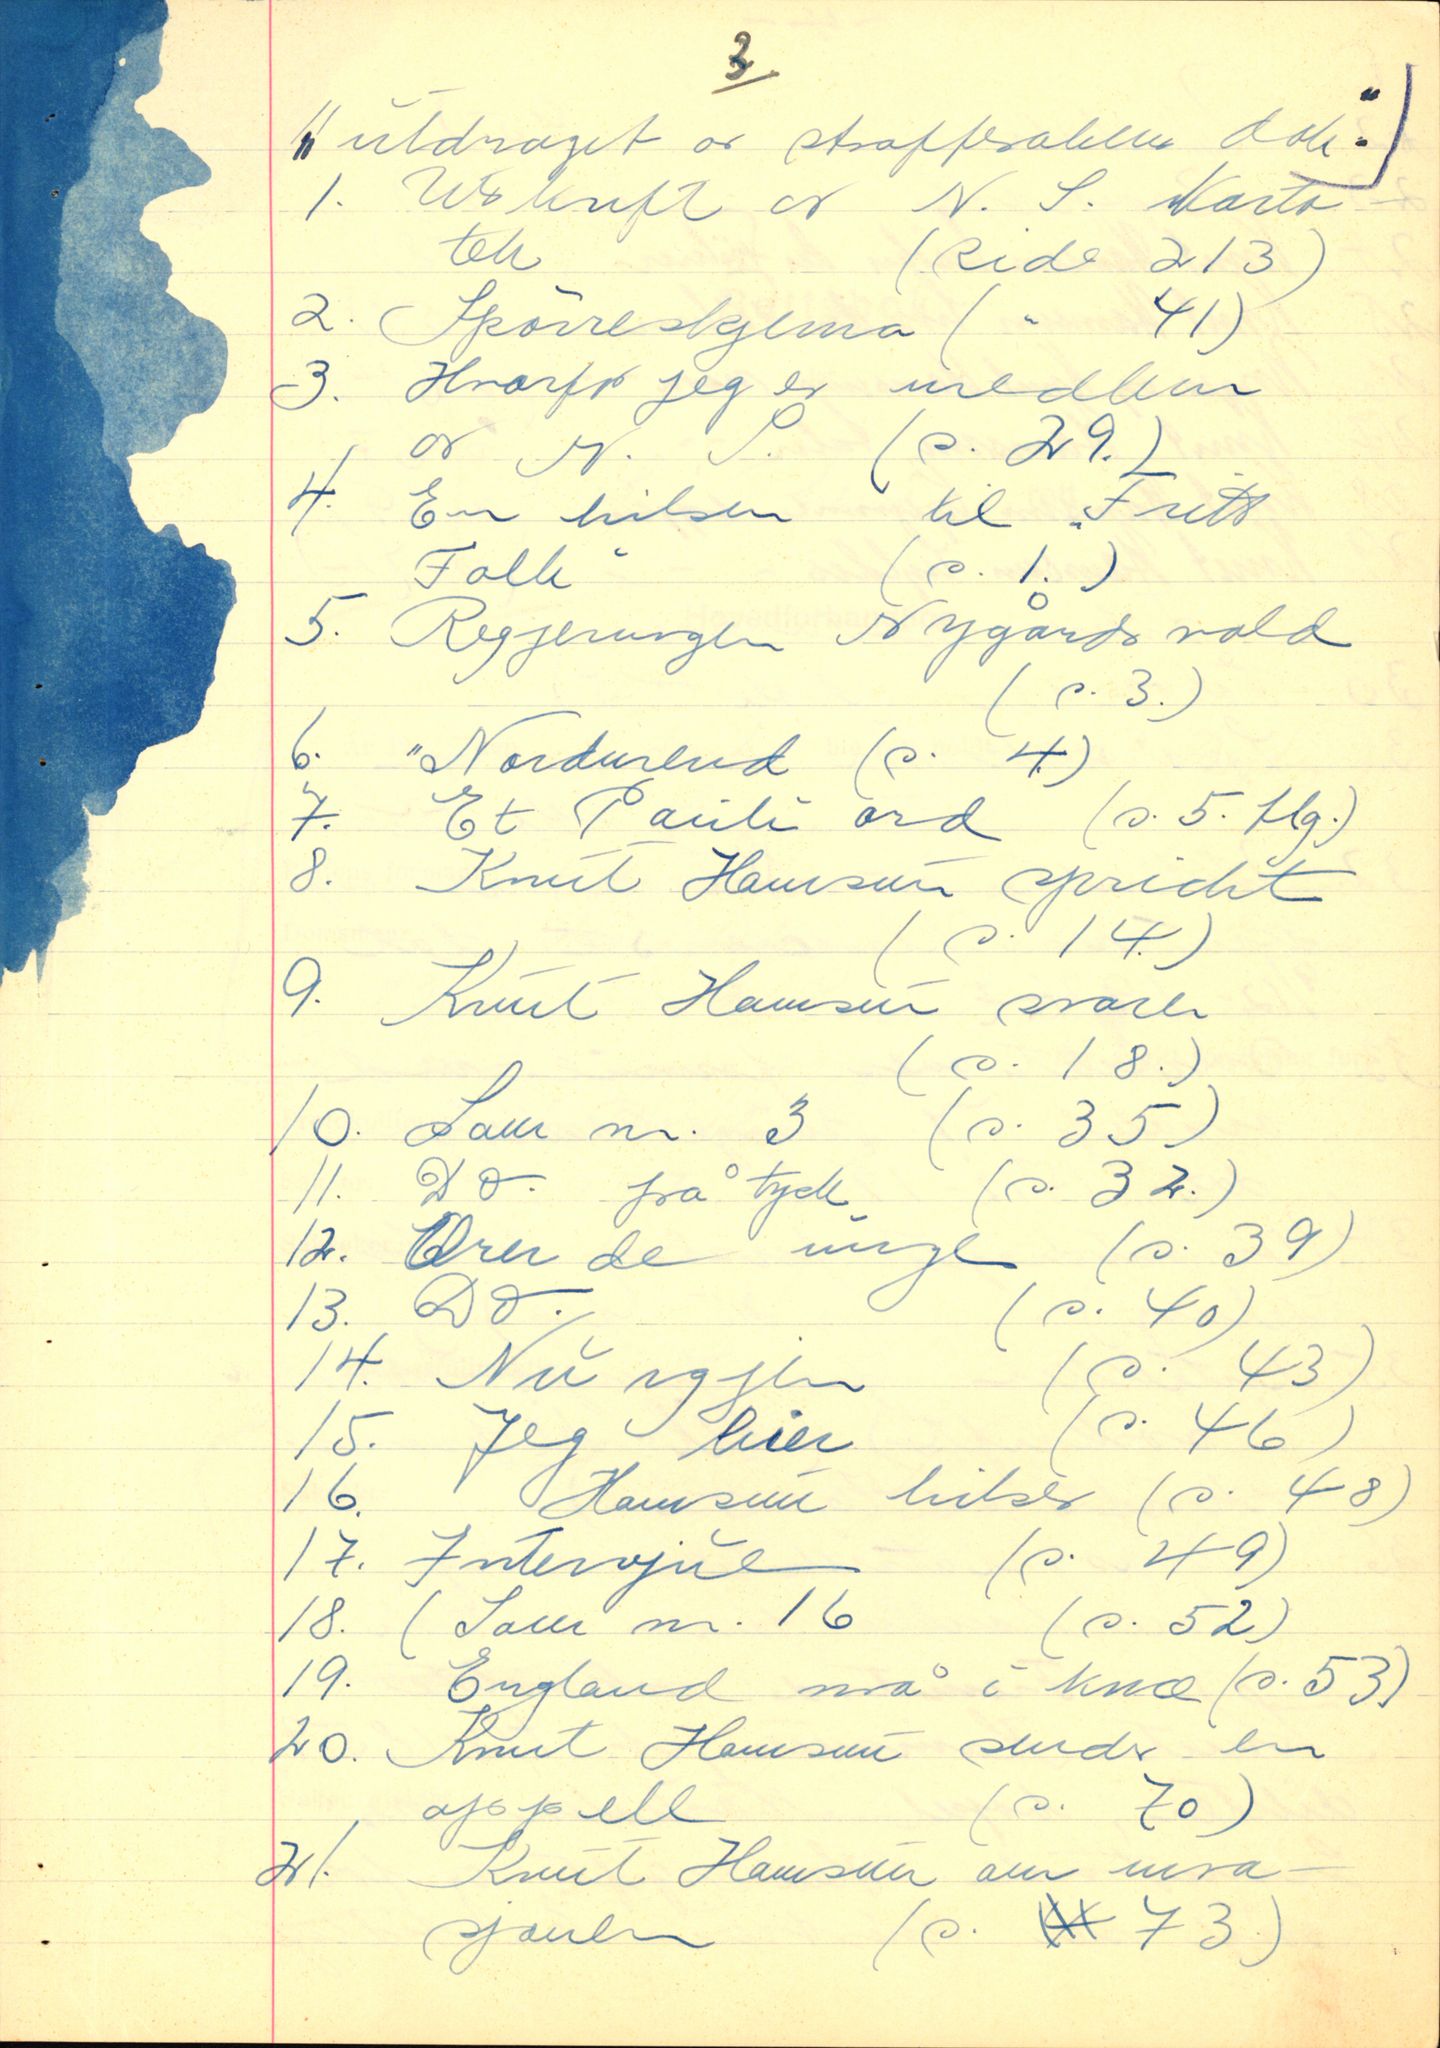 3
"utdraget av straffesakens dok."
1. Utskrift av N. S. Karto-
tek (side 213)
2. Spörreskjema ( " 41)
3. Hvorfor jeg er medlem
av N. S. (s. 29.)
4. En hilsen til "Fritt
Folk" (s. 1.)
5. Regjeringen Nygårdsvold
(s. 3.)
6. "Nordmend (s. 4)
7. Et Pauli ord (s. 5. flg.)
8. Knut Hamsun spricht
(s. 14.)
9. Knut Hamsun svarer
(s. 18.)
10. Som nr. 3 (s. 35)
11. Do. på tysk (s. 32.)
12. Over de unge (s. 39)
13. Do. (s. 40)
14. Nu igjen (s. 43)
15. Jeg (s. 46)
16. Hamsun hilser (s. 48)
17. Intervjue (s. 49)
18. (Som nr. 16 (s. 52)
19. England må i knæ (s. 53)
20. Knut Hamsun sender en
appell (s. 70)
21. Knut Hamsun om inva-
sjonen (s. 73.)